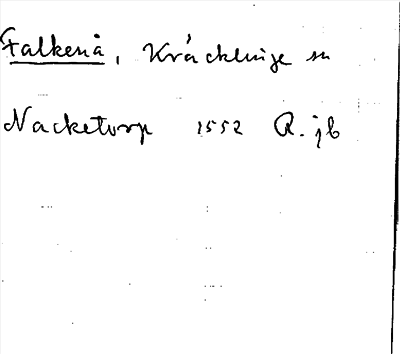 Falkenå, Kräcklinge sn
Nacketorp 1552 R. jb